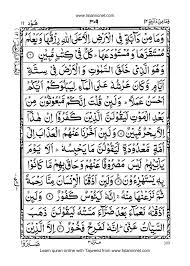 وَمَا مِنْ دَآبَّةٍ ١٢ هُود ١١
وَمَا مِنْ دَآبَّةٍ فِي الْأَرْضِ إِلَّا عَلَى اللّٰهِ رِزْقُهَا وَيَعْلَمُ
مُسْتَقَرَّهَا وَمُسْتَوْدَعَهَا كُلٌّ فِي كِتٰبٍ مُّبِيْنٍ
وَهُوَ الَّذِيْ خَلَقَ السَّمٰوٰتِ وَالْأَرْضَ فِيْ سِتَّةِ أَيَّامٍ
وَّكَانَ عَرْشُهٗ عَلَى الْمَآءِ لِيَبْلُوَكُمْ أَيُّكُمْ أَحْسَنُ عَمَلًا
وَلَئِنْ قُلْتَ إِنَّكُمْ مَّبْعُوْثُوْنَ مِنْ بَعْدِ الْمَوْتِ لَيَقُوْلَنَّ
الَّذِيْنَ كَفَرُوْٓا إِنْ هٰذَآ إِلَّا سِحْرٌ مُّبِيْنٌ وَلَئِنْ أَخَّرْنَا
عَنْهُمُ الْعَذَابَ إِلٰٓى أُمَّةٍ مَّعْدُوْدَةٍ لَّيَقُوْلُنَّ مَا يَحْبِسُهٗ أَلَا
يَوْمَ يَأْتِيْهِمْ لَيْسَ مَصْرُوْفًا عَنْهُمْ وَحَاقَ بِهِمْ مَّا كَانُوْا
بِهٖ يَسْتَهْزِءُوْنَ وَلَئِنْ أَذَقْنَا الْإِنْسَانَ مِنَّا رَحْمَةً
ثُمَّ نَزَعْنٰهَا مِنْهُ إِنَّهٗ لَيَئُوْسٌ كَفُوْرٌ وَلَئِنْ
أَذَقْنٰهُ نَعْمَآءَ بَعْدَ ضَرَّآءَ مَسَّتْهُ لَيَقُوْلَنَّ ذَهَبَ
السَّيِّاٰتُ عَنِّيْ إِنَّهٗ لَفَرِحٌ فَخُوْرٌ إِلَّا الَّذِيْنَ